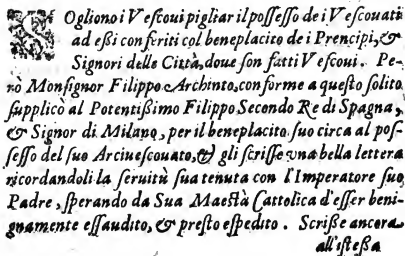 VOgliono i Veſcoui pigliar il poſſeſſo de i Veſcouati
ad eßi conferiti col beneplacito de i Prencipi, &
Signori delle Città, doue ſon fatti Veſcoui. Pe-
rò Monſignor Filippo Archinto, conforme a queſto ſolito
ſupplicò al Potentißimo Filippo Secondo Re di Spagna,
& Signor di Milano, per il beneplacito ſuo circa al poſ-
ſeſſo del ſuo Arciueſcouato, & gli ſcriſſe vna bella lettera
ricordandoli la ſeruitù ſua tenuta con l'Imperatore ſuo
Padre, ſperando da Sua Maeſtà Cattolica d'eſſer beni-
gnamente eſſaudito, & preſto eſpedito. Scriße ancora
all'iſteßa